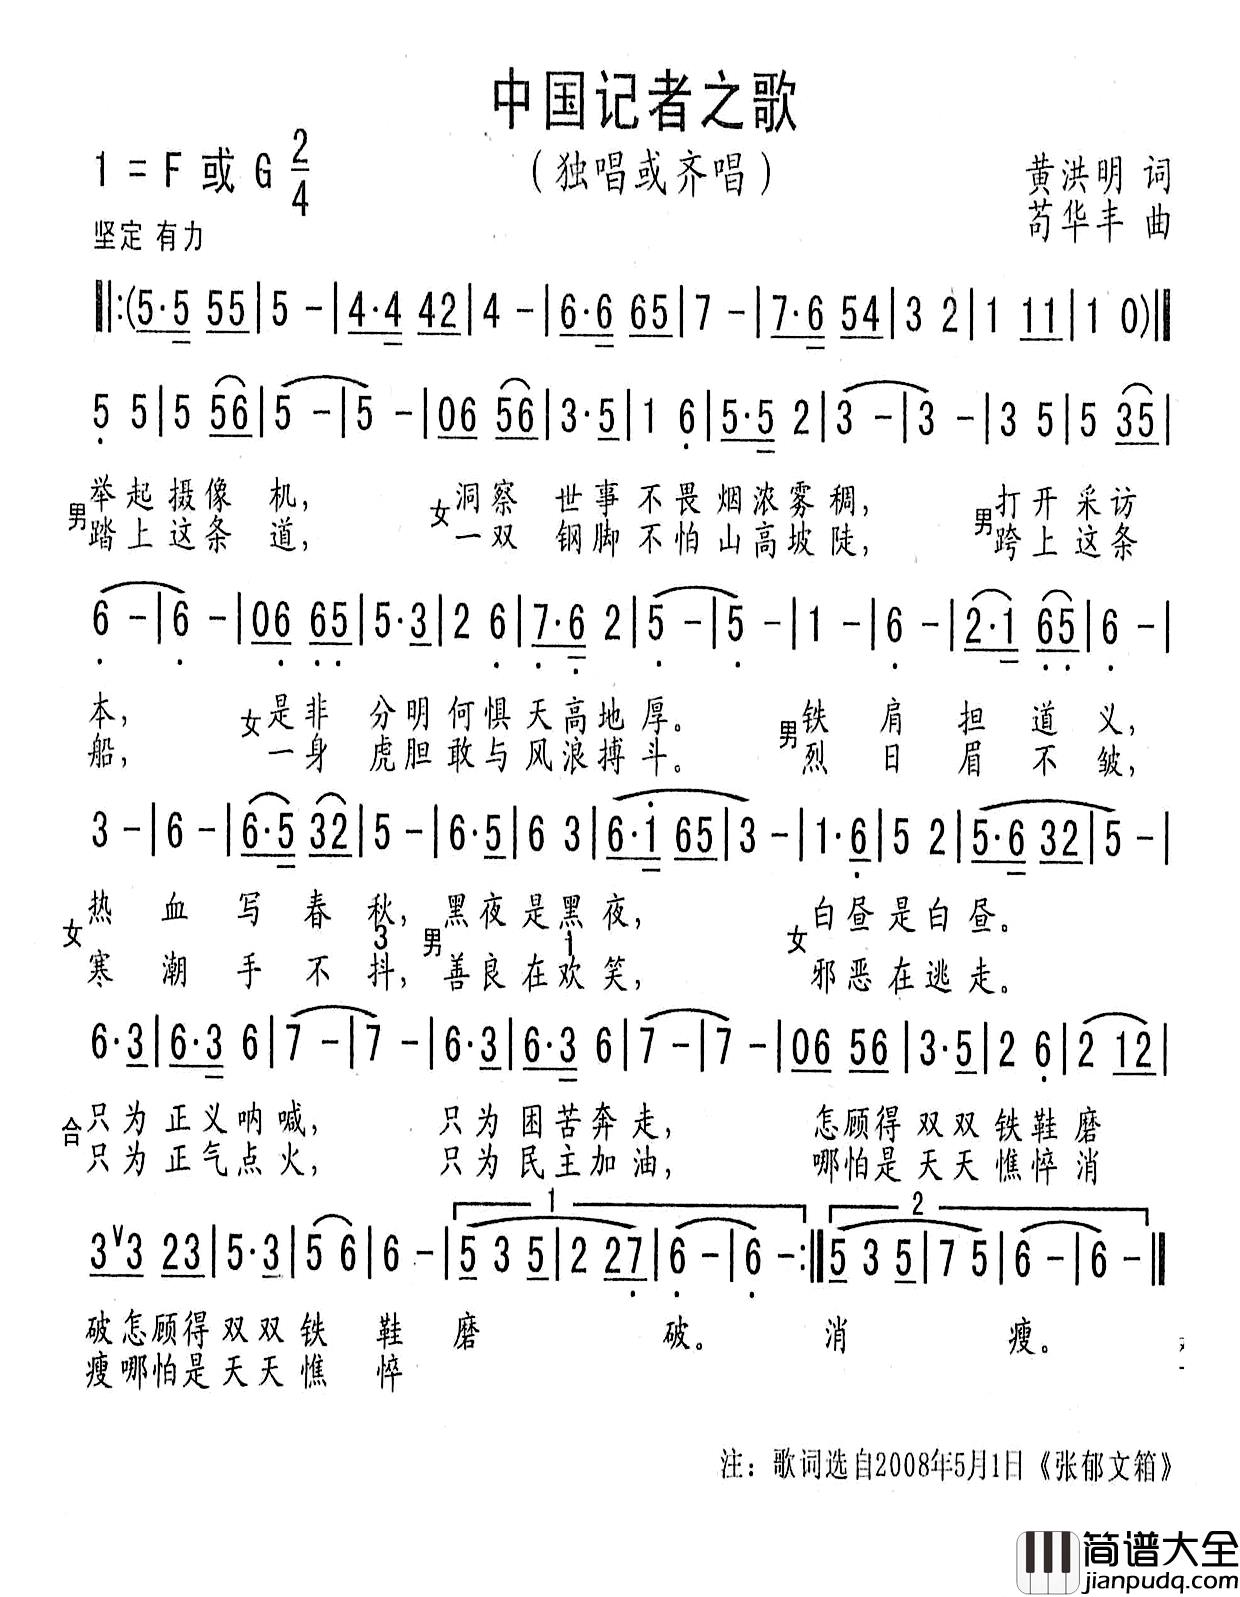 中国记者之歌
1 = F 或 G 2/4
（独唱或齐唱）
黄洪明 词
苟华丰 曲
坚定 有力
‖:(5·5 55|5 -|4·4 42|4 -|6·6 65|7 -|7·6 54|3 2|1 11|1 0)‖
5 5|5 56|5 -|5 -|06 56|3·5|1 6|5·5 2|3 -|3 -|3 5|5 35|
男 举起摄像 机， 女 洞察 世事不畏烟浓雾稠， 男 打开采访
踏上这条 道， 一双 钢脚不怕山高坡陡， 跨上这条
6 -|6 -|06 65|5·3|2 6|7·6 2|5 -|5 -|1 -|6 -|2·1 65|6 -|
本， 女 是非 分明何惧天高地厚。 男 铁 肩 担 道 义，
船， 一身 虎胆敢与风浪搏斗。 烈 日 眉 不 皱，
3 -|6 -|6·5 32|5 -|6·5|6 3|6·1 65|3 -|1·6|5 2|5·6 32|5 -|
女 热 血 写 春 秋， 男 黑夜是黑夜， 女 白昼是白昼。
3 1
寒 潮 手 不 抖， 善良在欢笑， 邪恶在逃走。
6·3|6·3 6|7 -|7 -|6·3|6·3 6|7 -|7 -|06 56|3·5|2 6|2 12|
合 只为 正义呐喊， 只为 困苦奔走， 怎顾得双双铁鞋磨
只为 正气点火， 只为 民主加油， 哪怕是天天憔悴消
1 2
3∨3 23|5·3|5 6|6 -|5 3 5|2 27|6 -|6 -:‖5 3 5|7 5|6 -|6 -‖
破怎顾得双双铁 鞋 磨 破。 消 瘦。
瘦哪怕是天天憔 悴
注：歌词选自2008年5月1日《张郁文箱》
简谱大全
jianpudq.com